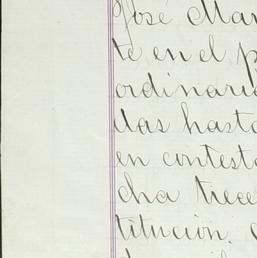 José Mar
te en el p
ordinario
das hasta
en contesta
cha trece
titución.